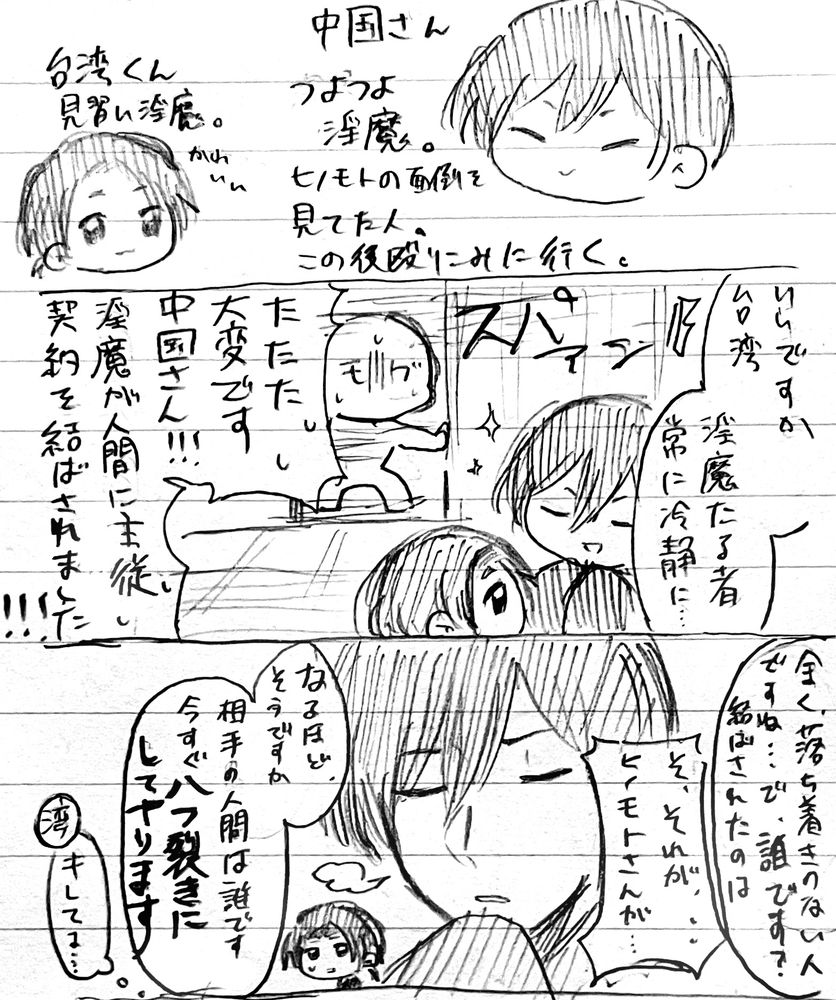 中国さん
つよつよ
淫魔。
ヒノモトの面倒を
見てた人。
この後殴りこみに行く。
台湾くん
見習い淫魔。
かわ
いい
いいですか
台湾
淫魔たる者
常に冷静に…
スパァン
モブ
たたた
大変です
中国さん!!!
淫魔が人間に主従
契約を結ばされました
!!!
全く、落ち着きのない人
ですね…で、誰です?
結ばされたのは
そ、それが、
ヒノモトさんが…
なるほど、
そうですか
相手の人間は誰です
今すぐ八つ裂きに
してやります
湾
キレてる…